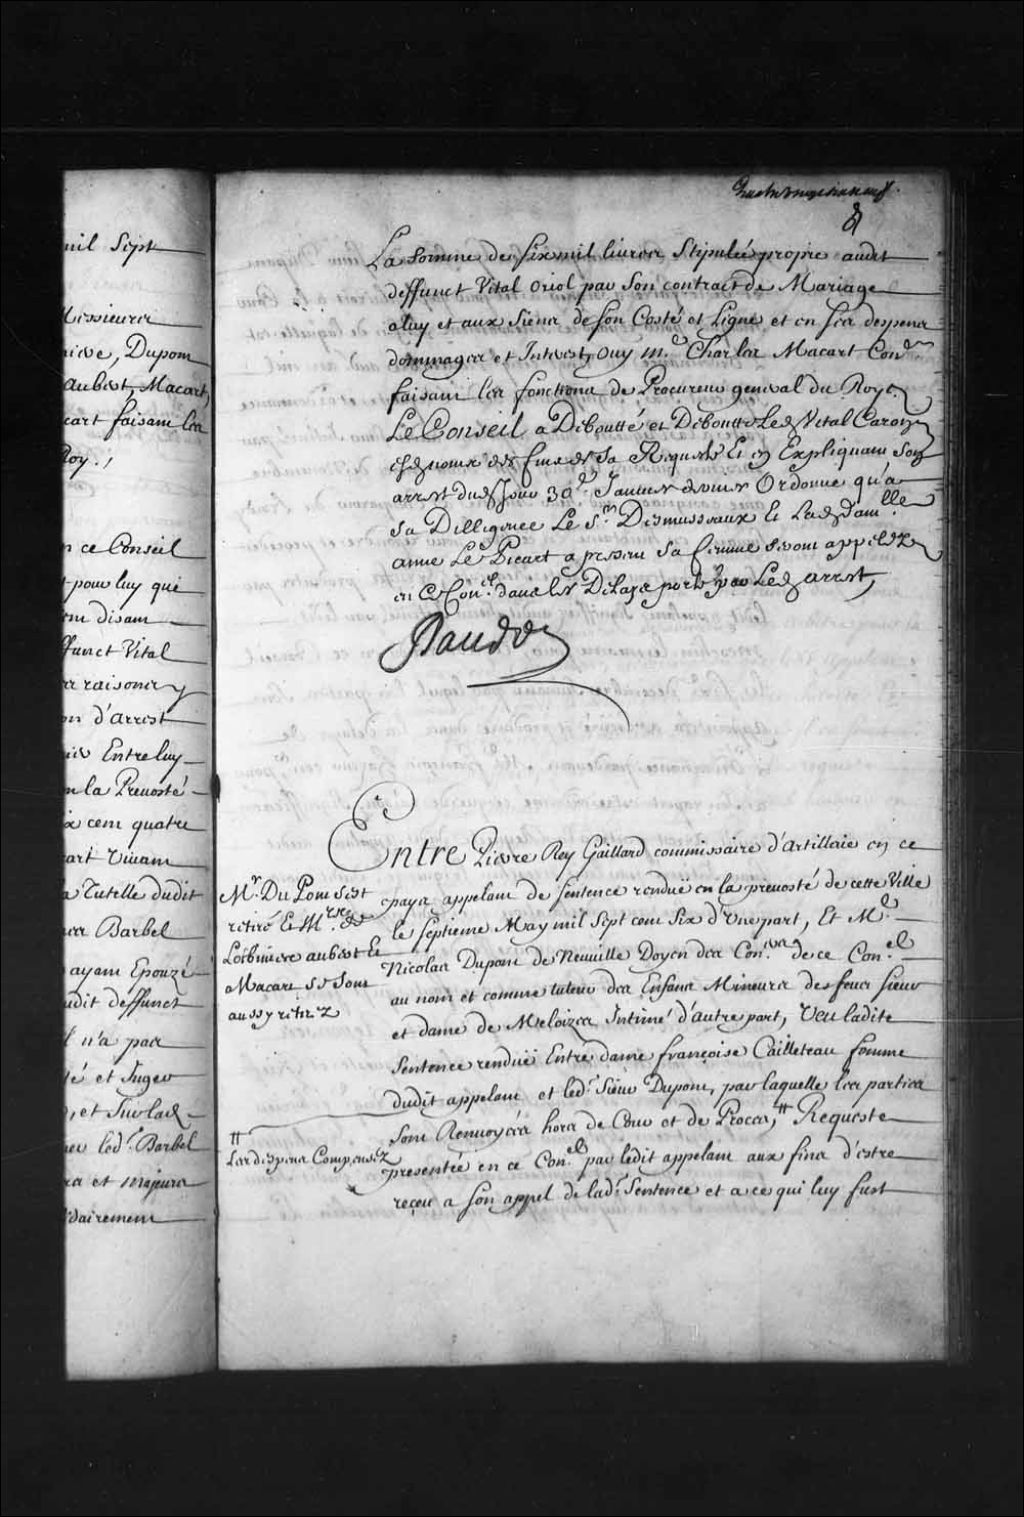 mil Sept
Messieurs
Dupont
aubert, Macart,
cart faisant les
Roy./
n ce Conseil
pour luy que
disant
ffunct Vital
raisons
on d'arrest
Entre luy
n la Prevosté
cent quatre
cart vivant
a Tutelle dudit
Barbel
ayant Epouzé
udit deffunct
l n'a pas
té et Juger
, et sur lad.
led.t Barbel
et majeurs
idairement
quatre vingt dix neuf.
La Somme de six mil livres Stipulée propre audit
deffunct Vital Oriol par Son contract de Mariage
a luy et aux Siens de son Costé et Ligne et en les despens
dommages et Interests, Ouy M.e Charles Macart Con.er
faisant les fonctions de Procureur general du Roy.
Le Conseil a Déboutté et Deboutte Led. Vital Caron
esd. noms des fins de Sa Requeste Et en Expliquant Son
arrest du Jour 30.e Janvier dernier Ordonne qu'a
Sa Dilligence Le S.r Dismusseaux Et Lad. dam.lle
anne Le Picart a present Sa femme Seront appelez
en Ce Con.el dans les Delays portés par Led. arrest,
Raudot
Entre Pierre Rey Gaillard commissaire d'artillerie en ce
pays appelant de Sentence rendüe en la prevosté de cette Ville
le Septieme May mil Sept cent Six d'Une part, Et M.e
Nicolas Dupont de Neuville Doyen des Con.ers de ce Con.el
au nom et comme tuteur des Enfans Mineurs des feus Sieur
et dame de Meloizes Intimé d'autre part, Veu ladite
Sentence rendüe Entre dame françoise Cailleteau femme
dudit appelant et led.t Sieur Dupont, par laquelle les parties
Sont Renvoyées hors de Cour et de Procès, # Requeste
presentée en ce Con.el par ledit appelant aux fins d'estre
receu a Son appel de lad.te Sentence et a ce qui luy fust
M.r Du Pont S'est
retiré Et M.rs de
Lotbiniere aubert Et
Macart Se Sont
aussy retirez
# Les despens Compensez